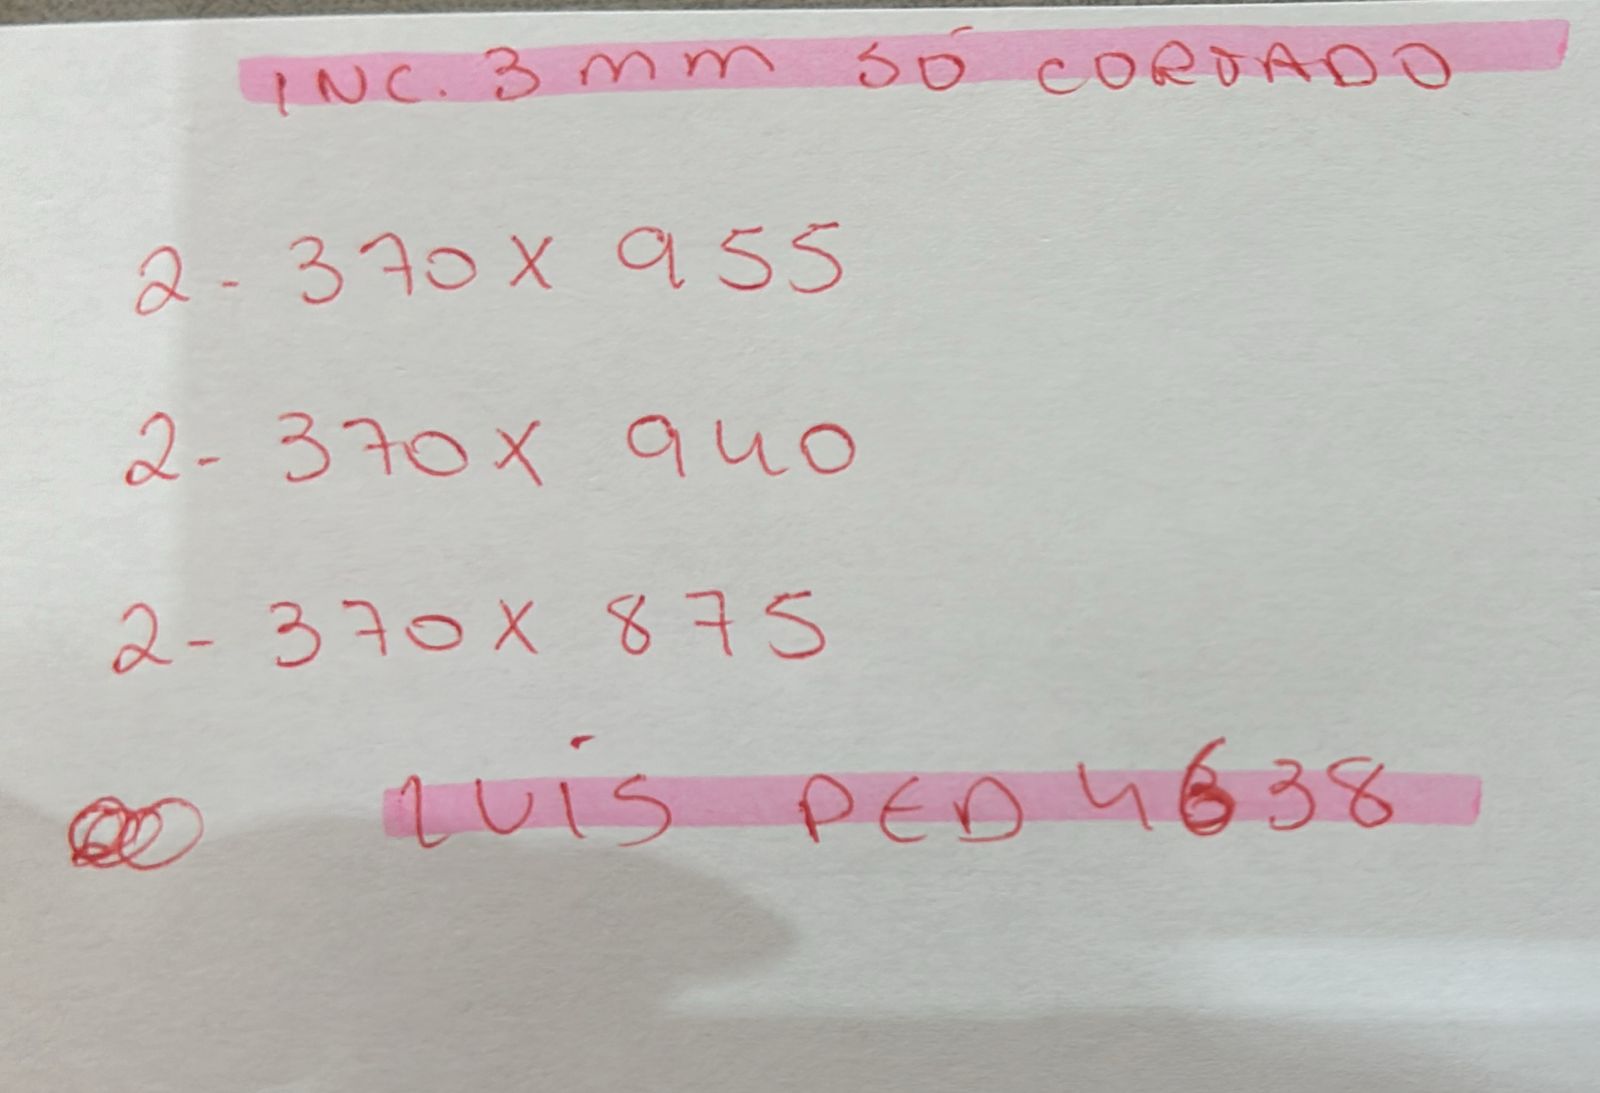 INC. 3 mm SÓ CORTADO
2- 370 X 955
2- 370 X 940
2- 370 X 875
LUIS PED 4638